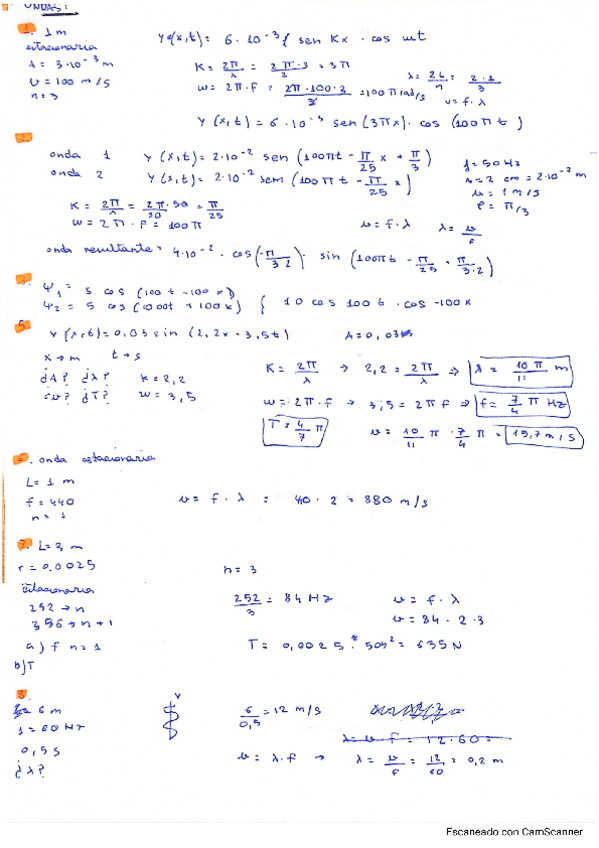 ONDAS:
1. 1 m
estacionaria
A = 3·10⁻³ m
v = 100 m/s
n = 3
y(x,t) = 6·10⁻³ sen Kx · cos ωt
K = 2π/λ = 2π·3/2 = 3π
λ = 2L/n = 2·1/3
ω = 2π·f = 2π·100·3/2 = 100π rad/s
v = f·λ
y(x,t) = 6·10⁻³ sen(3πx)·cos(100πt)
2.
onda 1 y(x,t) = 2·10⁻² sen(100πt - π/25 x + π/3)
onda 2 y(x,t) = 2·10⁻² sen(100πt - π/25 x)
f = 50 Hz
A = 2 cm = 2·10⁻² m
v = 1 m/s
φ = π/3
K = 2π/λ = 2π·50/50 = π/25
ω = 2π·f = 100π
v = f·λ λ = v/f
onda resultante = 4·10⁻² · cos(-π/3·2) · sin(100πt - π/25 + π/3·2)
3.
Ψ₁ = 5 cos (100t - 100x)
Ψ₂ = 5 cos (100t + 100x) { 10 cos 100t · cos -100x
5.
y(x,t) = 0,03 sin (2,2x - 3,5t)
x → m t → s
¿A? ¿λ? K = 2,2
¿v? ¿T? ω = 3,5
K = 2π/λ → 2,2 = 2π/λ ⇒ λ = 10π/11 m
ω = 2π·f → 3,5 = 2πf ⇒ f = 7/4 π Hz
T = 4/7 π
v = 10/11 π · 7/4 π = 15,7 m/s
6. onda estacionaria
L = 1 m
f = 440
n = 1
v = f·λ = 40·2 = 880 m/s
7. L = 3 m
r = 0.0025
n = 3
estacionaria
252 → n
336 → n + 1
a) f n = 1
b) T
252/3 = 84 Hz
v = f·λ
v = 84·2·3
T = 0,0025 · 504² = 635 N
8.
6 m
f = 60 Hz
0,5 s
¿λ?
y
6/0,5 = 12 m/s
λ = v·f = 12·60 =
v = λ·f → λ = v/f = 12/60 = 0,2 m
Escaneado con CamScanner